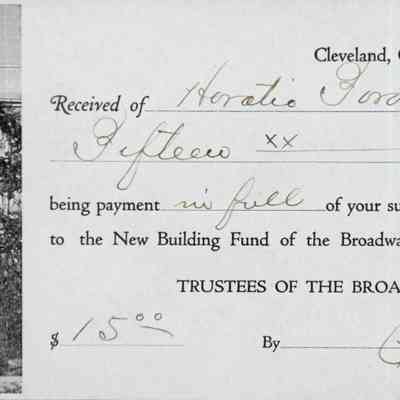 Cleveland,
Received of Horatio Ford
Fifteen xx
being payment in full of your su
to the New Building Fund of the Broadwa
TRUSTEES OF THE BROA
$ 15.00
By